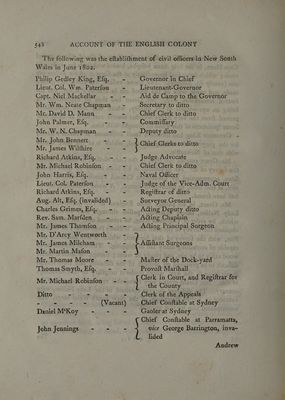 542 ACCOUNT OF THE ENGLISH COLONY
The following was the establishment of civil officers in New South
Wales in June 1802.
Philip Gidley King, Esq. - Governor in Chief
Lieut. Col. Wm. Paterson - Lieutenant-Governor
Capt. Niel Mackellar - - Aid de Camp to the Governor
Mr. Wm. Neate Chapman Secretary to ditto
Mr. David D. Mann - - Chief Clerk to ditto
John Palmer, Esq. - - Commissary
Mr. W. N. Chapman - Deputy ditto
Mr. John Bennett - -
Mr. James Wilshire - - } Chief Clerks to ditto
Richard Atkins, Esq. - - Judge Advocate
Mr. Michael Robinson - - Chief Clerk to ditto
John Harris, Esq. - - Naval Officer
Lieut. Col. Paterson - - Judge of the Vice-Adm. Court
Richard Atkins, Esq. - - Register of ditto
Aug. Alt, Esq. (invalided) - Surveyor General
Charles Grimes, Esq. - - Acting Deputy ditto
Rev. Sam. Marsden - - Acting Chaplain
Mr. James Thomson - - Acting Principal Surgeon
Mr. D'Arcy Wentworth -
Mr. James Mileham - - } Assistant Surgeons
Mr. Martin Mason - -
Mr. Thomas Moore - - Master of the Dock-yard
Thomas Smyth, Esq. - - Provost Marshall
Mr. Michael Robinson - - { Clerk in Court, and Registrar for
the County
Ditto - - - - Clerk of the Appeals
- - - - - (Vacant) Chief Constable at Sydney
Daniel McKoy - - - Gaoler at Sydney
John Jennings - - - { Chief Constable at Parramatta,
vice George Barrington, inva-
lided
Andrew